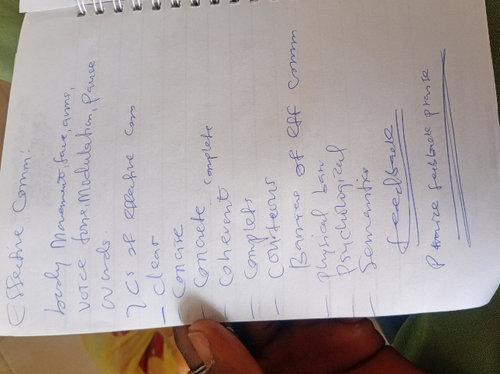 Effective Comm:
body Movement, face, arms,
voice tone, Modulation, Pause
Words
7 Cs of effective com
- clear
- Concise
- Concrete complete
- Coherent
- Complete
- Courteous
Barriers of eff comm
- Physical barr
- Psychological
- Semantics
feedback
Praise feedback praise